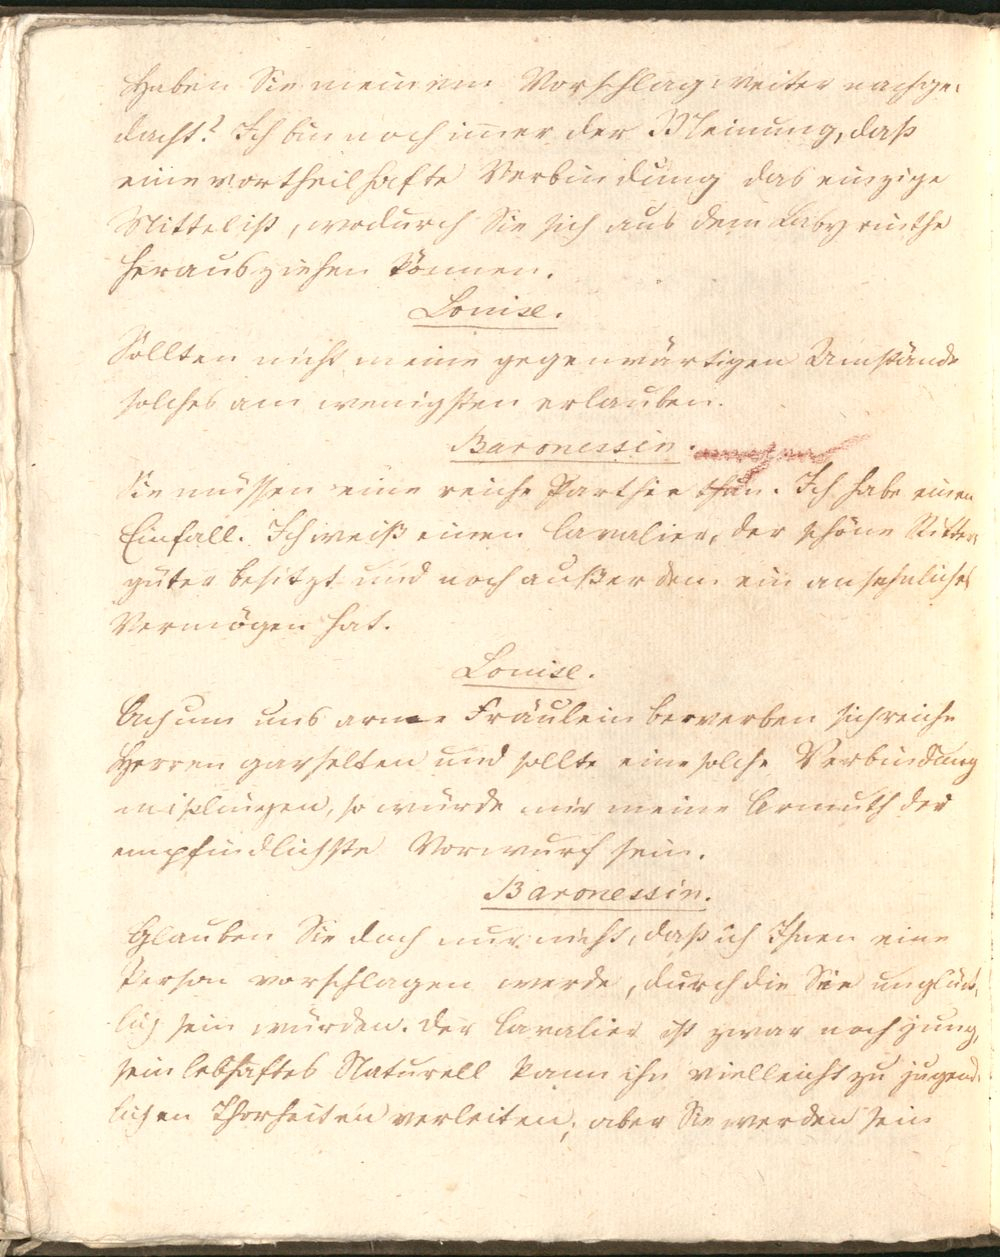 Haben Sie meinem Vorschlag weiter nachge-
dacht? Ich bin noch immer der Meinung, daß
eine vortheilhafte Verbindung das einzige
Mittel ist, wodurch Sie sich aus dem Labyrinthe
herausziehen können.
Louise.
Sollten nicht meine gegenwärtigen Umstände
solches am wenigsten erlauben.
Baronessin.
Sie müssen eine reiche Parthie thun. Ich habe einen
Einfall. Ich weiß einen Cavalier, der schöne Ritter-
güter besitzt und noch außerdem ein ansehnliches
Vermögen hat.
Louise.
Ach um uns arme Fräulein bewerben sich reiche
Herren gar selten und sollte eine solche Verbindung
mislingen, so würde mir meine Armuth der
empfindlichste Vorwurf sein.
Baronessin.
Glauben Sie doch nur nicht, daß ich Ihnen eine
Person vorschlagen werde, durch die Sie unglück-
lich sein würden. Der Cavalier ist zwar noch jung,
sein lebhaftes Naturell kann ihn vielleicht zu jugend-
lichen Thorheiten verleiten, aber Sie werden sein